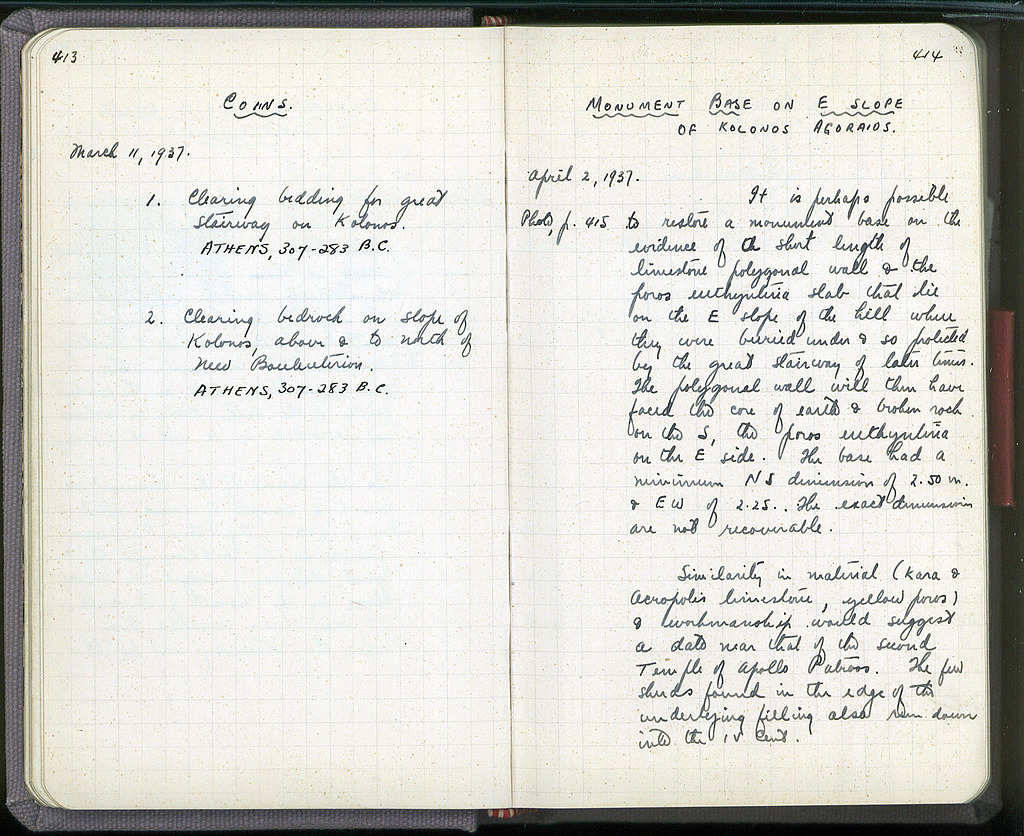 413
COINS.
March 11, 1937.
1. Clearing bedding for great
stairway on Kolonos.
ATHENS, 307-283 B.C.
2. Clearing bedrock on slope of
Kolonos, above & to north of
New Bouleuterion.
ATHENS, 307-283 B.C.
414
MONUMENT BASE ON E SLOPE
OF KOLONOS AGORAIOS.
April 2, 1937.
It is perhaps possible
Photo, p. 415 to restore a monument base on the
evidence of the short length of
limestone polygonal wall & the
poros euthynteria slab that lie
on the E slope of the hill where
they were buried under & so protected
by the great stairway of later times.
The polygonal wall will then have
faced the core of earth & broken rock
on the S, the poros euthynteria
on the E side. The base had a
minimum NS dimension of 2.50 m.
& EW of 2.25. The exact dimensions
are not recoverable.
Similarity in material (Kara &
Acropolis limestone, yellow poros)
& workmanship would suggest
a date near that of the second
Temple of Apollo Patroos. The few
sherds found in the edge of the
underlying filling also run down
into the IV cent.